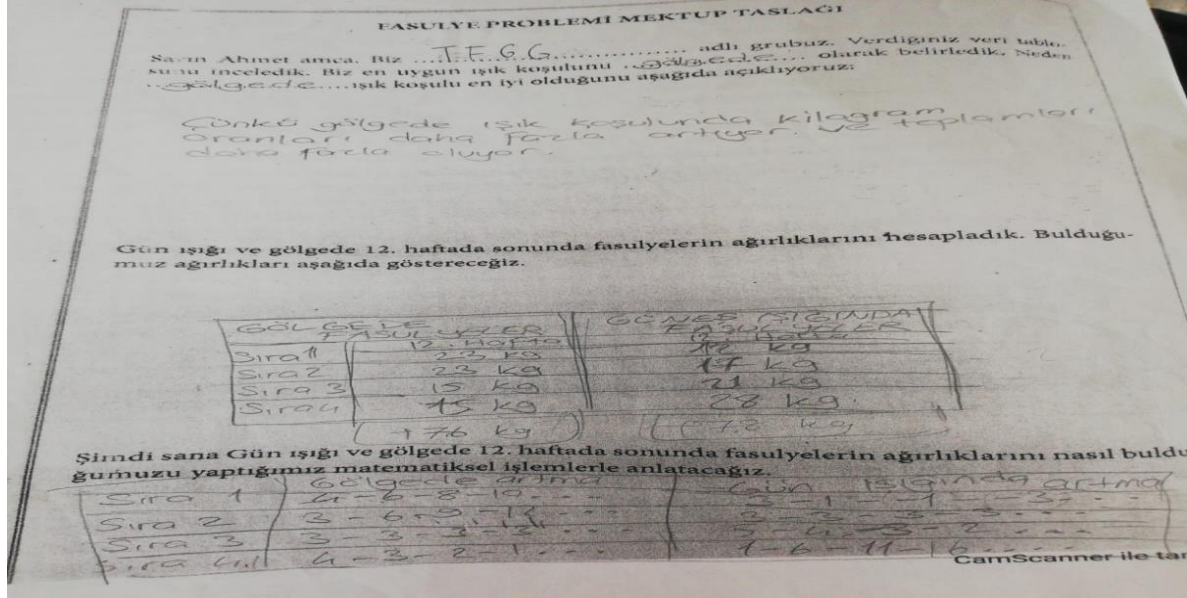 FASULYE PROBLEMİ MEKTUP TASLAĞI
Sayın Ahmet amca. Biz ....T.F.G.G............... adlı grubuz. Verdiğiniz veri tablo-
sunu inceledik. Biz en uygun ışık koşulunu ..gölgede.... olarak belirledik. Neden
..gölgede....ışık koşulu en iyi olduğunu aşağıda açıklıyoruz:
Çünkü gölgede ışık koşulunda kilagram
Oranları daha fazla artıyor. ve toplamları
daha fazla oluyor.
Gün ışığı ve gölgede 12. haftada sonunda fasulyelerin ağırlıklarını hesapladık. Bulduğu-
muz ağırlıkları aşağıda göstereceğiz.
GÖLGEDE FASULYELER GÜNEŞ IŞIĞINDA FASULYELER
12. Hafta 12. Hafta
Sıra 1 23 kg 12 kg
Sıra 2 23 kg 17 kg
Sıra 3 15 kg 21 kg
Sıra 4 15 kg 28 kg
76 kg 78 kg
Şimdi sana Gün ışığı ve gölgede 12. haftada sonunda fasulyelerin ağırlıklarını nasıl buldu
ğumuzu yaptığımız matematiksel işlemlerle anlatacağız.
Gölgede artma Gün ışığında artma
Sıra 1 4-6-8-10....
Sıra 2 3-6-9-12... 3-3-3-3...
Sıra 3 3-3-3-3...
Sıra 4 4-3-2-1... 1-6-11-16....
CamScanner ile tar